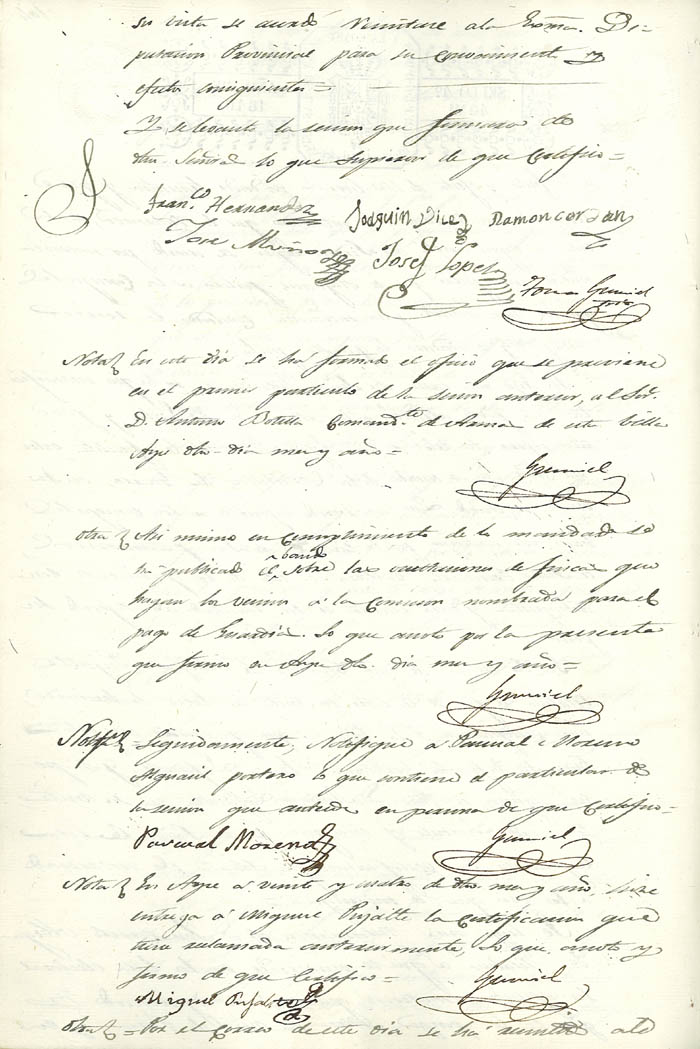 su vista se acordó remitirse a la Exma. Di=
putacion Provincial para su conocimiento y
efectos consiguientes=
Y se levantó la sesion que firmaron dho
dhos. Señores lo que supieron de que Certifico=
Franco Hernandez Joaquin Dicez Ramon Cerdan
Jose Muñoz Josef Lopez
Gumiel
Nota En este dia se há formado el oficio que se previene
en el primer particular de la sesion anterior, al Sor.
D. Antonio Botella Comandte. de Armas de esta billa
Aspe dho. dia mes y año=
Gumiel
Otra Asi mismo en cumplimiento de lo mandado se
há publicado el bando sobre las de fincas que
hagan los vecinos á la Comision nombrada para el
pago de Guardia. Lo que anoto por la presente
que firmo en Aspe dho. dia mes y año=
Gumiel
Notifn. Seguidamente, Notifiqué a Pascual Moreno
Alguacil portero lo que contiene el particular de
la sesion que antecede en persona de que Certifico=
Pascual Moreno Gumiel
Nota En Aspe á veinte y cuatro de dho. mes y año, hice
entrega á Miguel Pujalte la certificacion que
tiene reclamada anteriormente, Lo que anoto y
firmo de que Certifico=
Miguel Pujalte Gumiel
Otra = Por el Correo de este dia se há remitido al